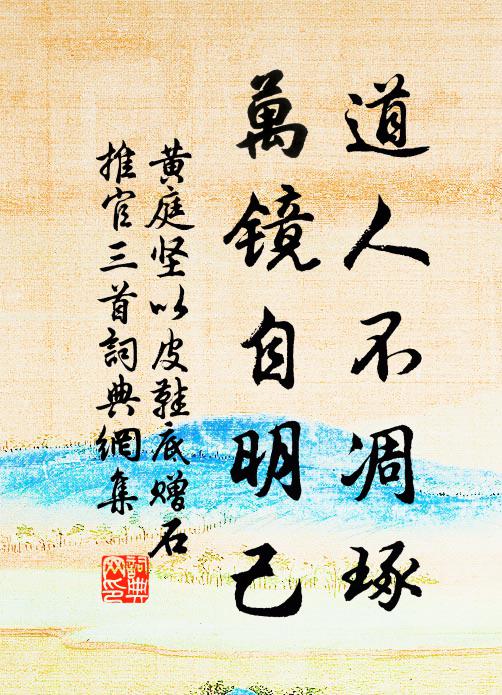 道人不凋琢
萬镜自明己
黄庭坚以皮鞋底赠石
推官三首詞典網集
詞典
网印